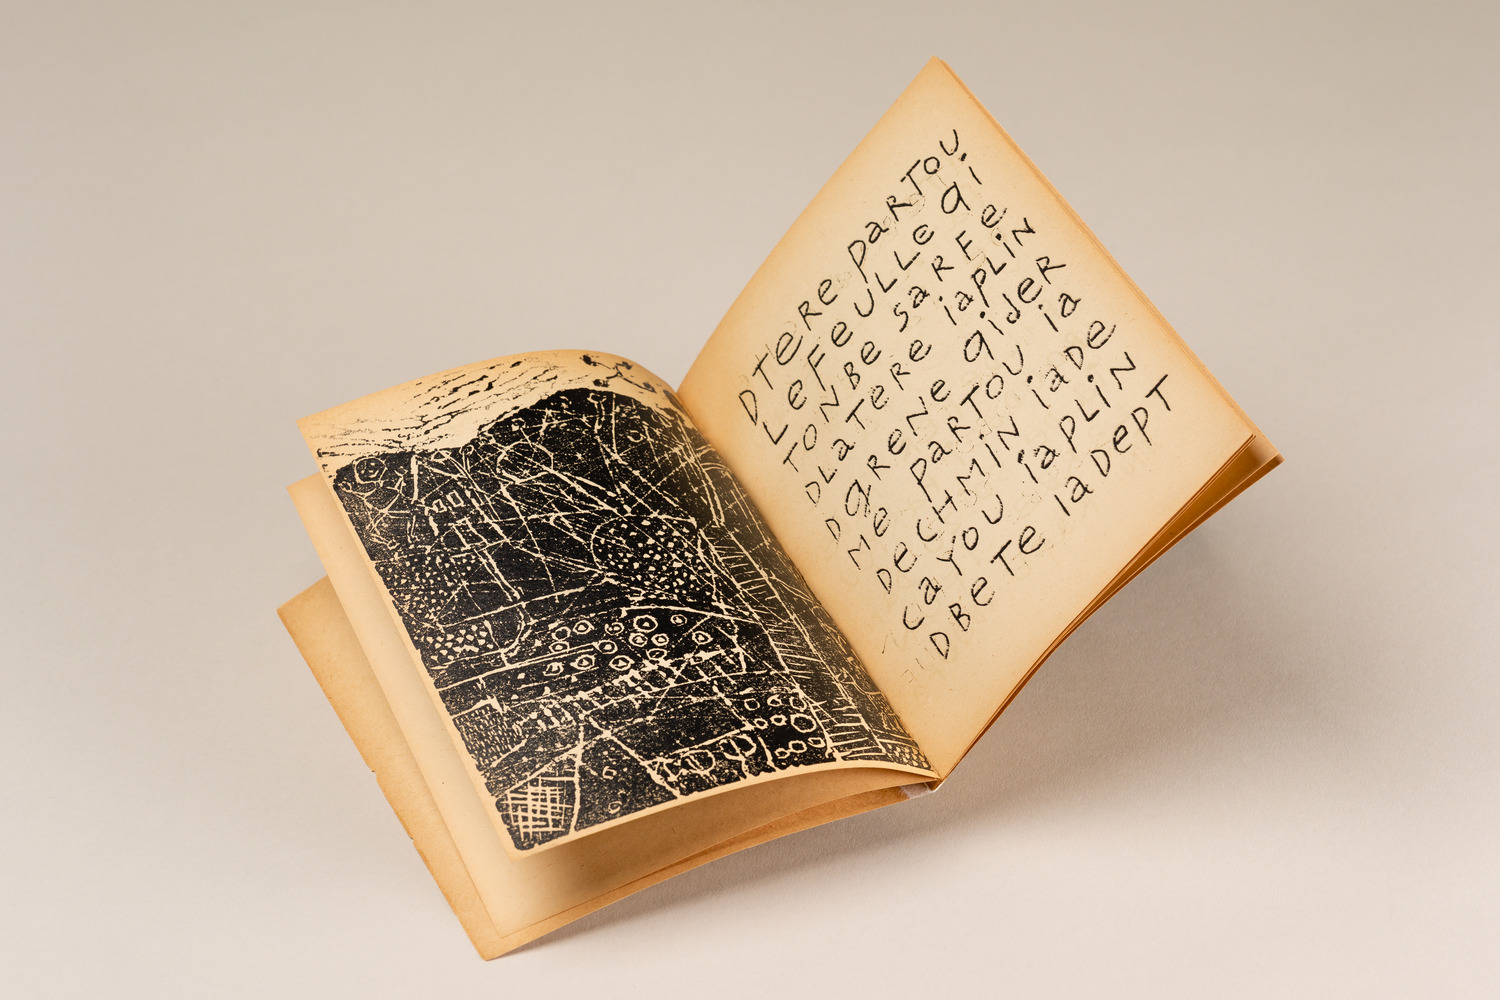 DTERE PaRTOU
LeFeULLe qi
TONBe SaRFe
DLaTeRe iaPLiN
DqReNe qiDeR
Me PaRTOU ia
DeCHMiN iaDe
CaYOU iaPLiN
DBeTe iaDePT